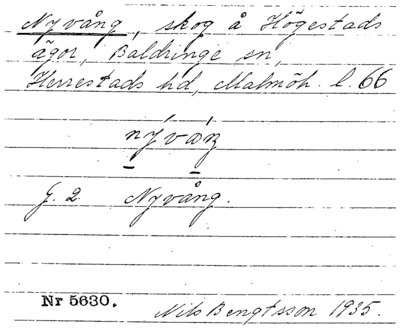 Nyvång, skog å Högestads
ägor, Baldringe sn,
Herrestads hd, Malmöh. l. 66
nyvaŋ
G. 2 Nyvång.
Nr 5630. Nils Bengtsson 1935.